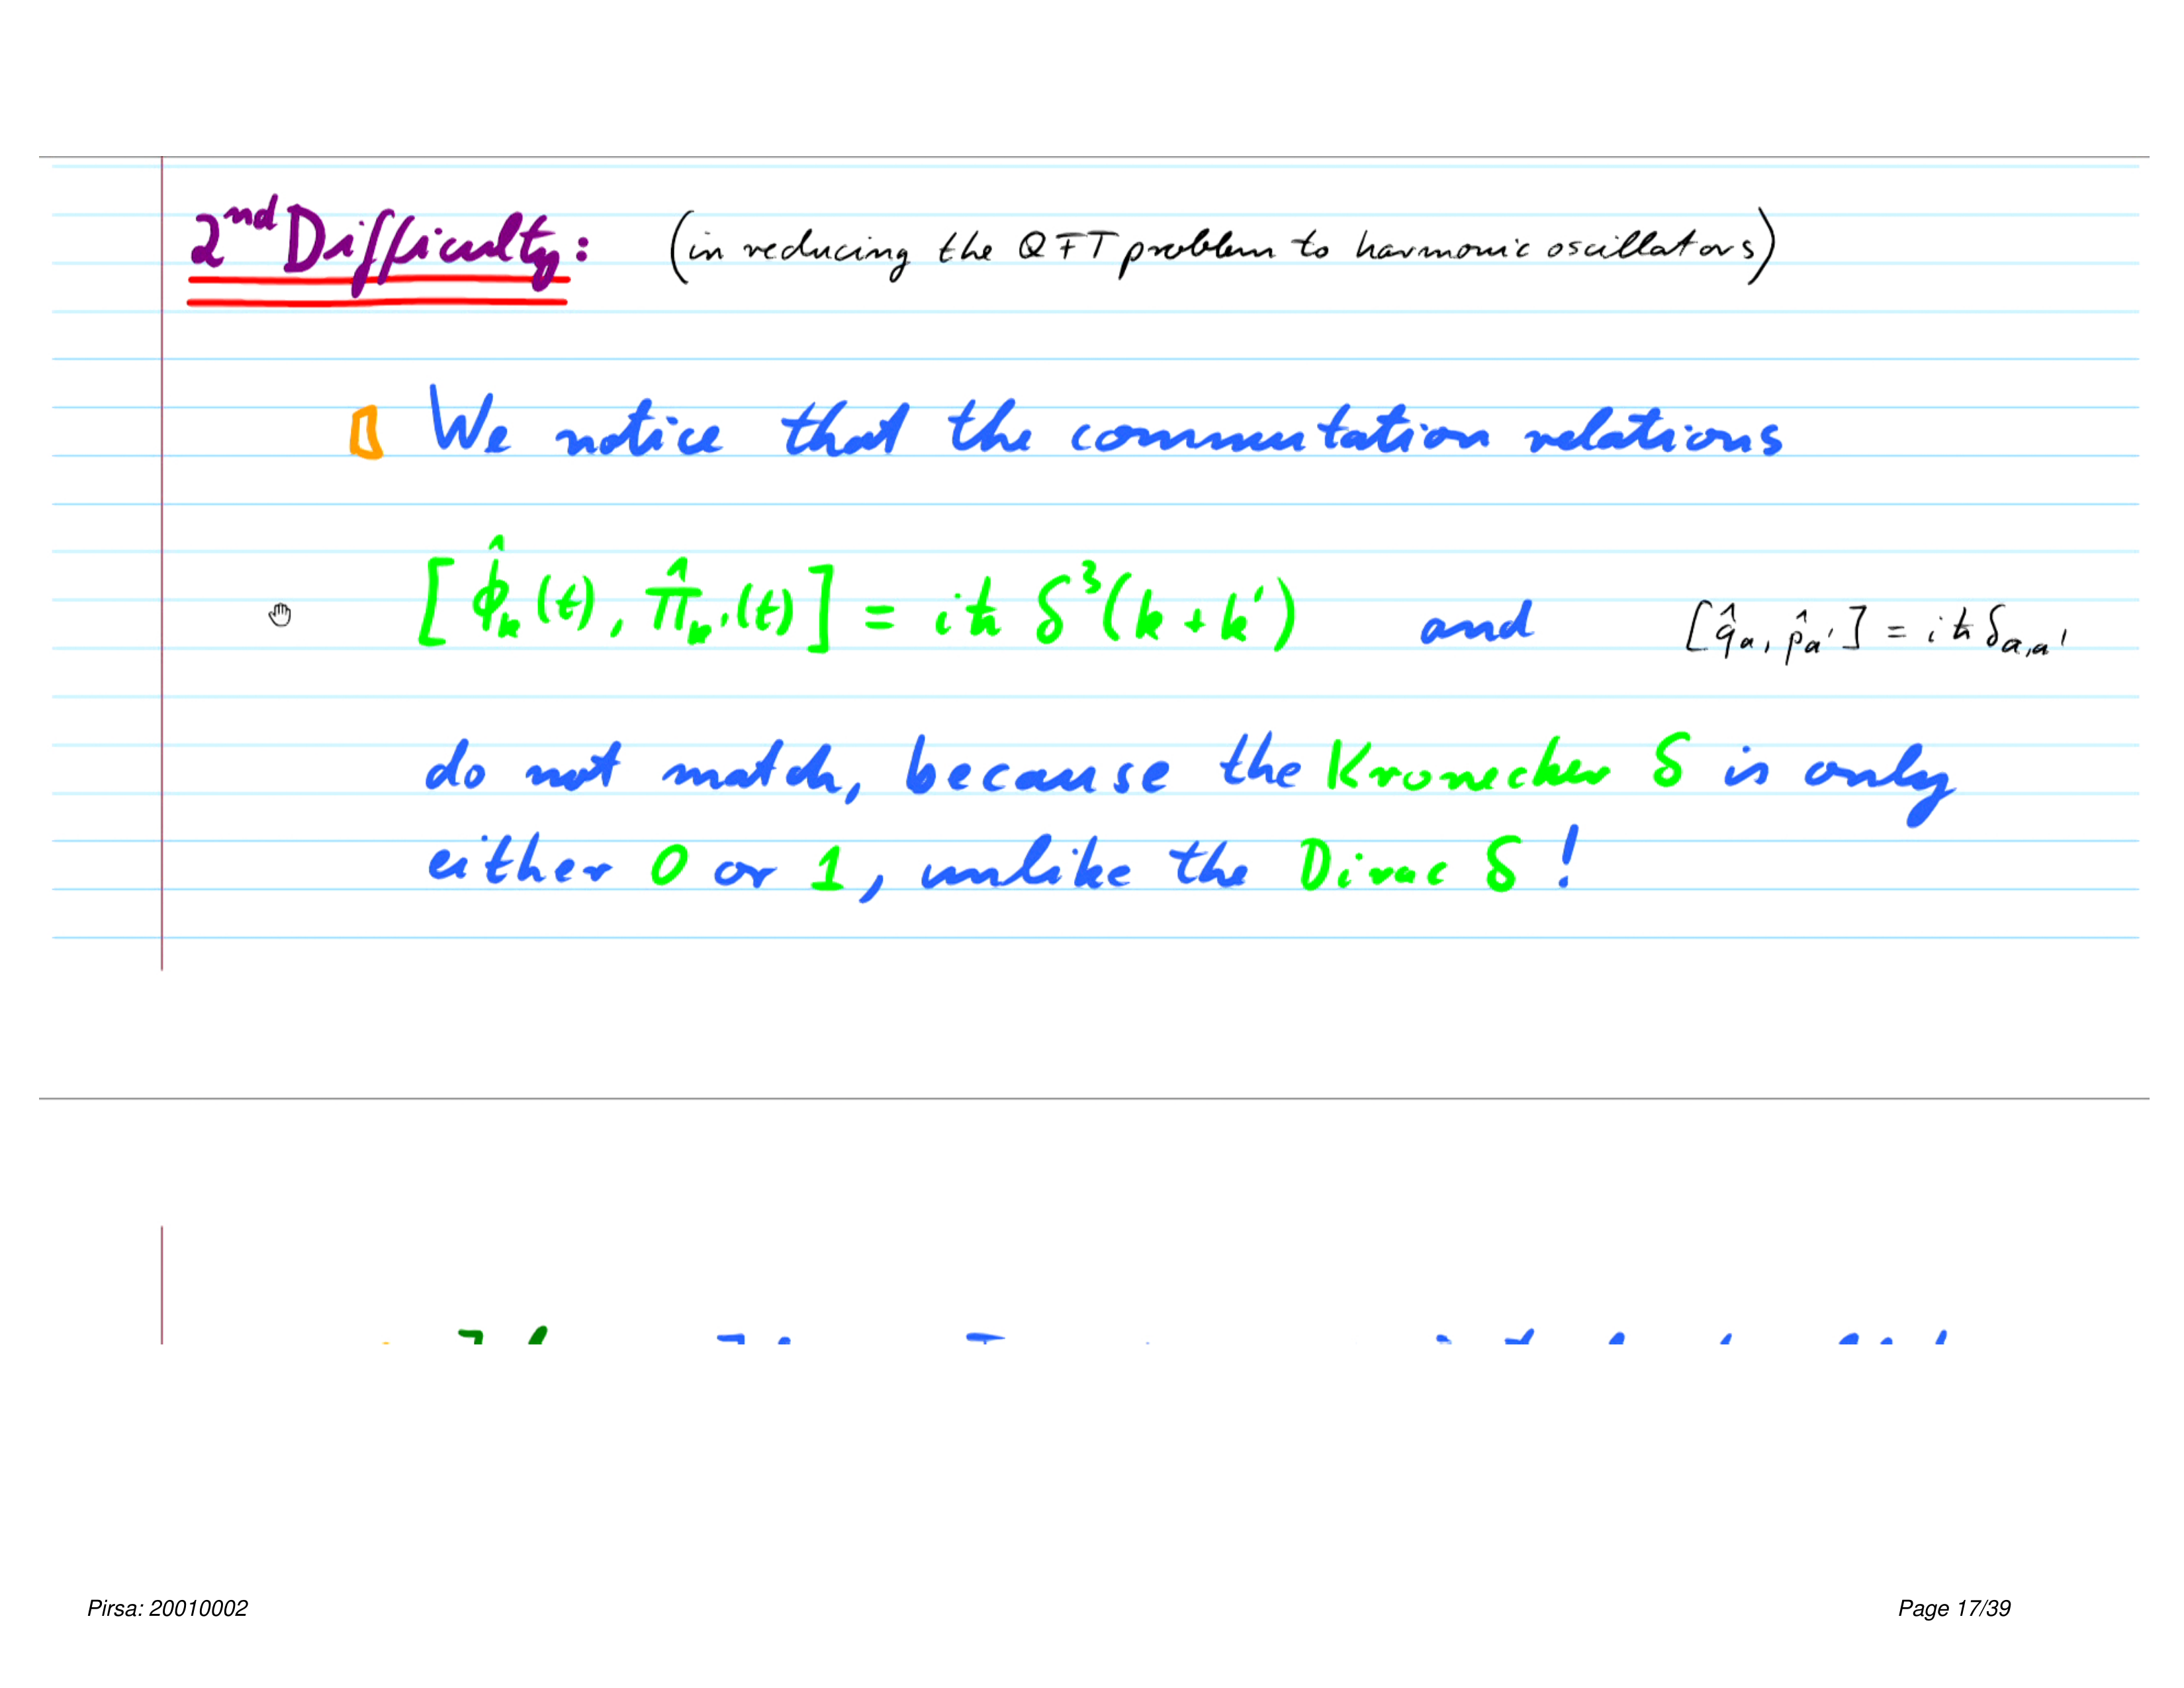 2nd Difficulty: (in reducing the QFT problem to harmonic oscillators)
We notice that the commutation relations
[ϕ̂ₖ(t), π̂ₖ'(t)] = iħ δ³(k+k') and [q̂ₐ, p̂ₐ'] = iħ δₐ,ₐ'
do not match, because the Kronecker δ is only
either 0 or 1, unlike the Dirac δ!
Pirsa: 20010002
Page 17/39